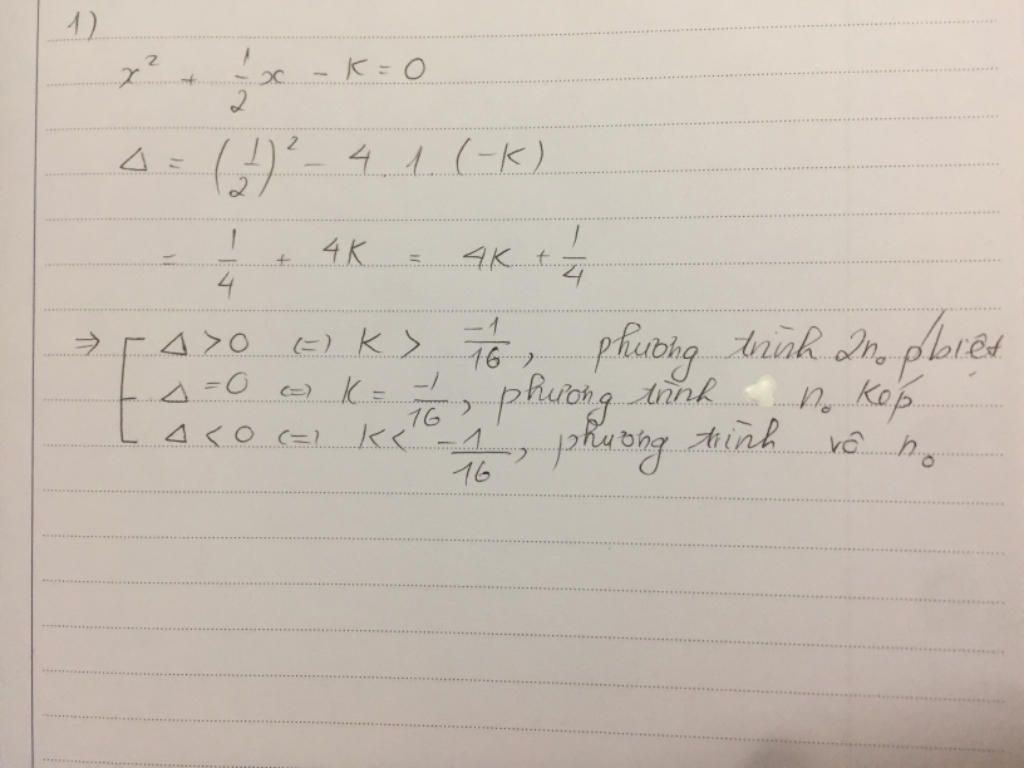 1)
x² + 1/2 x - K = 0
Δ = (1/2)² - 4 . 1 . (-K)
= 1/4 + 4K = 4K + 1/4
=> [ Δ > 0 (=) K > -1/16, phương trình 2n₀ p/biệt
Δ = 0 (=) K = -1/16, phương trình n₀ kép
Δ < 0 (=) K < -1/16, phương trình vô n₀